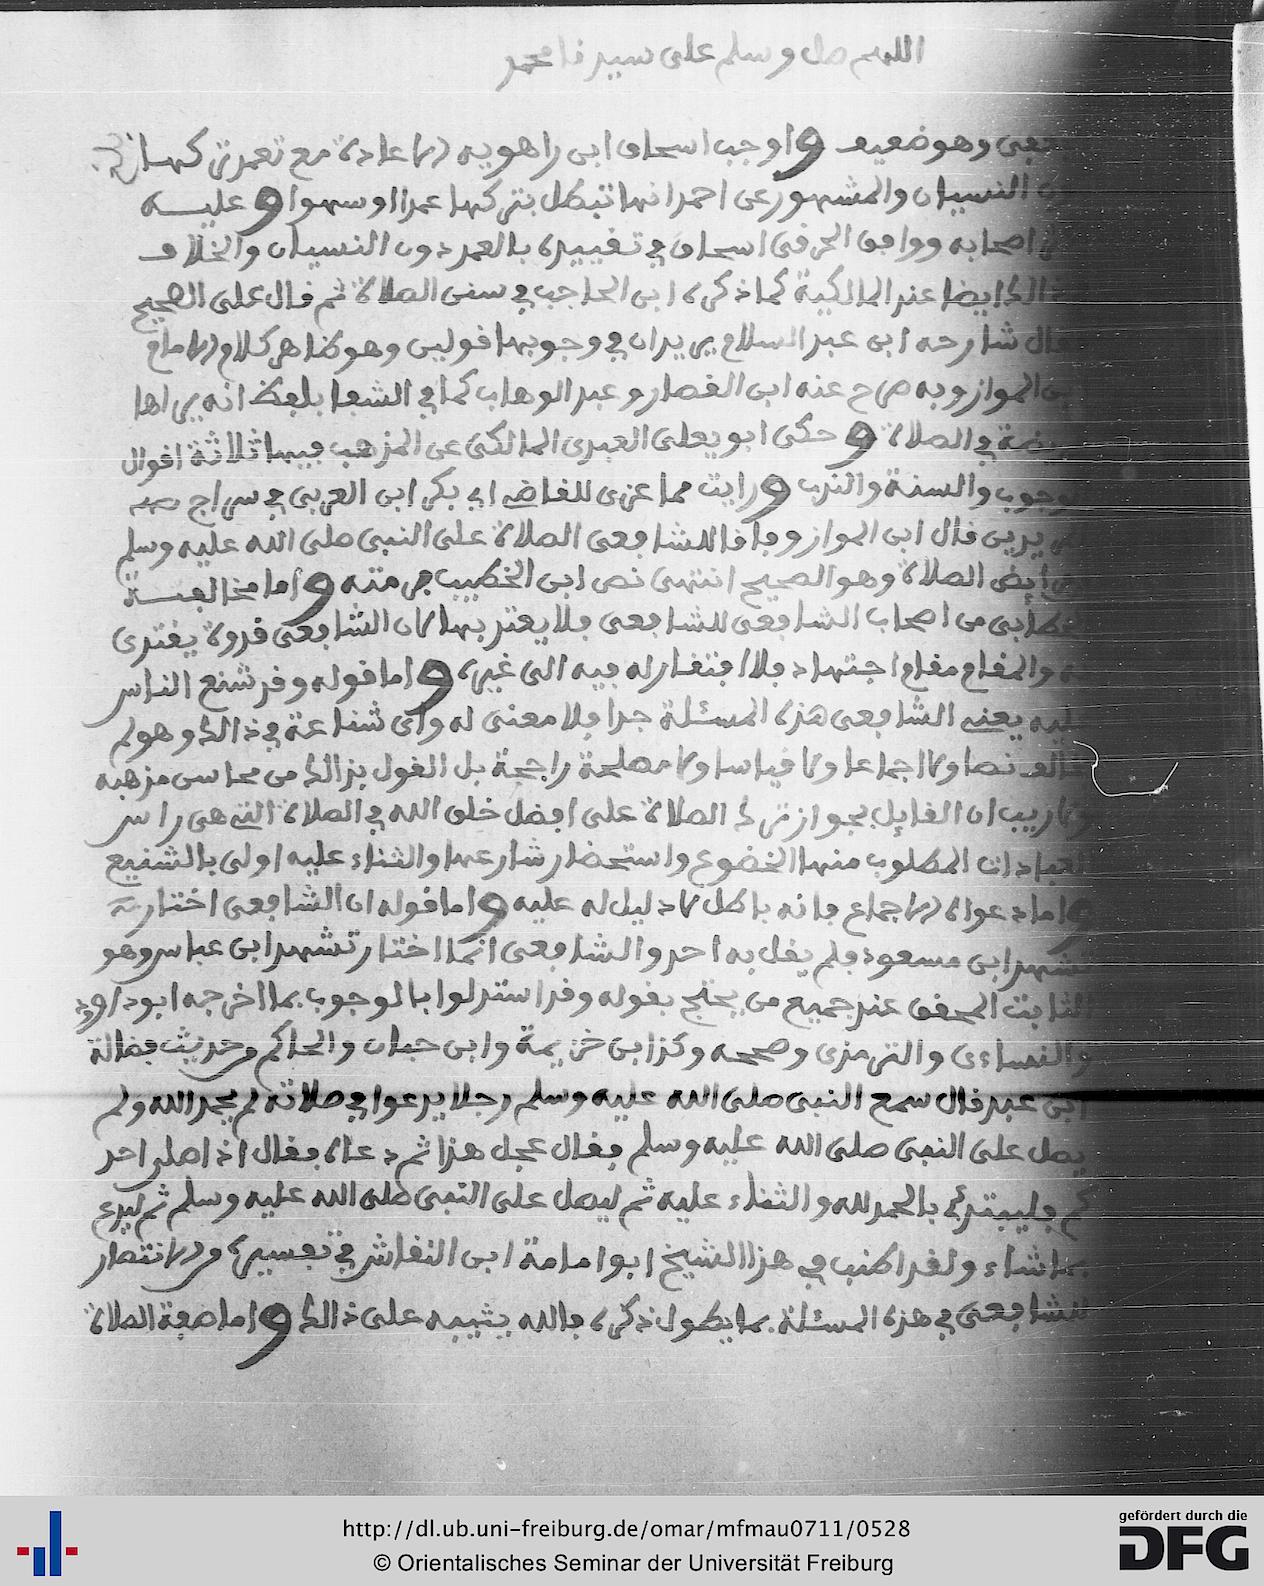 اللهم صل وسلم على سيدنا محمد
وهو ضعيف واوجب اسحاق ابن راهويه الاعادة مع تعمد تركها
النسيان والمشهور عن احمد انها تبطل بتركها عمدا او سهوا وعليه
اصحابه ووافق الخرقى اسحاق في تقييده بالعمد دون النسيان والخلاف
ايضا عند المالكية كما ذكره ابن الحاجب في سنن الصلاة ثم قال على الصحيح
قال شارحه ابن عبد السلام يريد ان في وجوبها قولين وهو ظاهر كلام الامام
ابن المواز وبه صرح عنه ابن القصار وعبد الوهاب كما في الشفا بلفظ انه يراها
في الصلاة وحكى ابو يعلى العبدى المالكى عن المذهب فيها ثلاثة اقوال
الوجوب والسنة والندب ورايت مما عزى للقاضى ابى بكر ابن العربى في سراج
المريدين قال ابن المواز وفاقا للشافعى الصلاة على النبى صلى الله عليه وسلم
الصلاة وهو الصحيح انتهى نص ابن الخطيب واما مخالفة
الخطابى من اصحاب الشافعى للشافعى فلا يعتد بها لان الشافعى قدوة يقتدى
به والمقام مقام اجتهاد فلا افتقار له فيه الى غيره واما قوله وقد شنع الناس
عليه يعنى الشافعى هذه المسئلة جدا فلا معنى له واى شناعة في ذالك وهو لم
يخالف نصا ولا اجماعا ولا قياسا ولا مصلحة راجحة بل القول بذالك من محاسن مذهبه
ولا ريب ان القايل بجواز ترك الصلاة على افضل خلق الله في الصلاة التى هى راس
العبادات المطلوب منها الخضوع واستحضار شارعها والثناء عليه اولى بالتشنيع
واما دعواه الاجماع فانه باطل لا دليل له عليه واما قوله ان الشافعى اختار
تشهد ابن مسعود فلم يقل به احد والشافعى انما اختار تشهد ابن عباس وهو
الثابت المحقق عند جميع من يحتج بقوله وقد استدلوا بالوجوب بما اخرجه ابو داود
والنساءى والترمذى وصححه وكذا ابن خزيمة وابن حبان والحاكم من حديث فضالة
ابن عبيد قال سمع النبى صلى الله عليه وسلم رجلا يدعوا في صلاته لم يحمد الله ولم
يصل على النبى صلى الله عليه وسلم فقال عجل هذا ثم دعاه فقال اذا صلى احد
كم فليبتدئ بالحمد لله والثناء عليه ثم ليصل على النبى صلى الله عليه وسلم ثم ليدع
بما شاء ولقد اطنب في هذا الشيخ ابوا مامة ابن النقاش في تفسيره في الانتصار
للشافعى في هذه المسئلة بما يطول ذكره فالله يثيبه على ذالك واما صفة الصلاة
http://dl.ub.uni-freiburg.de/omar/mfmau0711/0528
© Orientalisches Seminar der Universität Freiburg
gefördert durch die
DFG